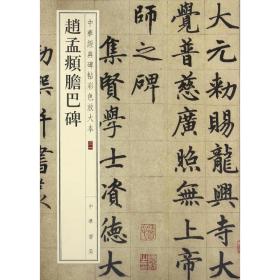 趙孟頫膽巴碑
中華經典碑帖彩色放大本
中華書局
大元勑賜龍興寺大
覺普慈廣照無上
師之碑
集賢學士資德大